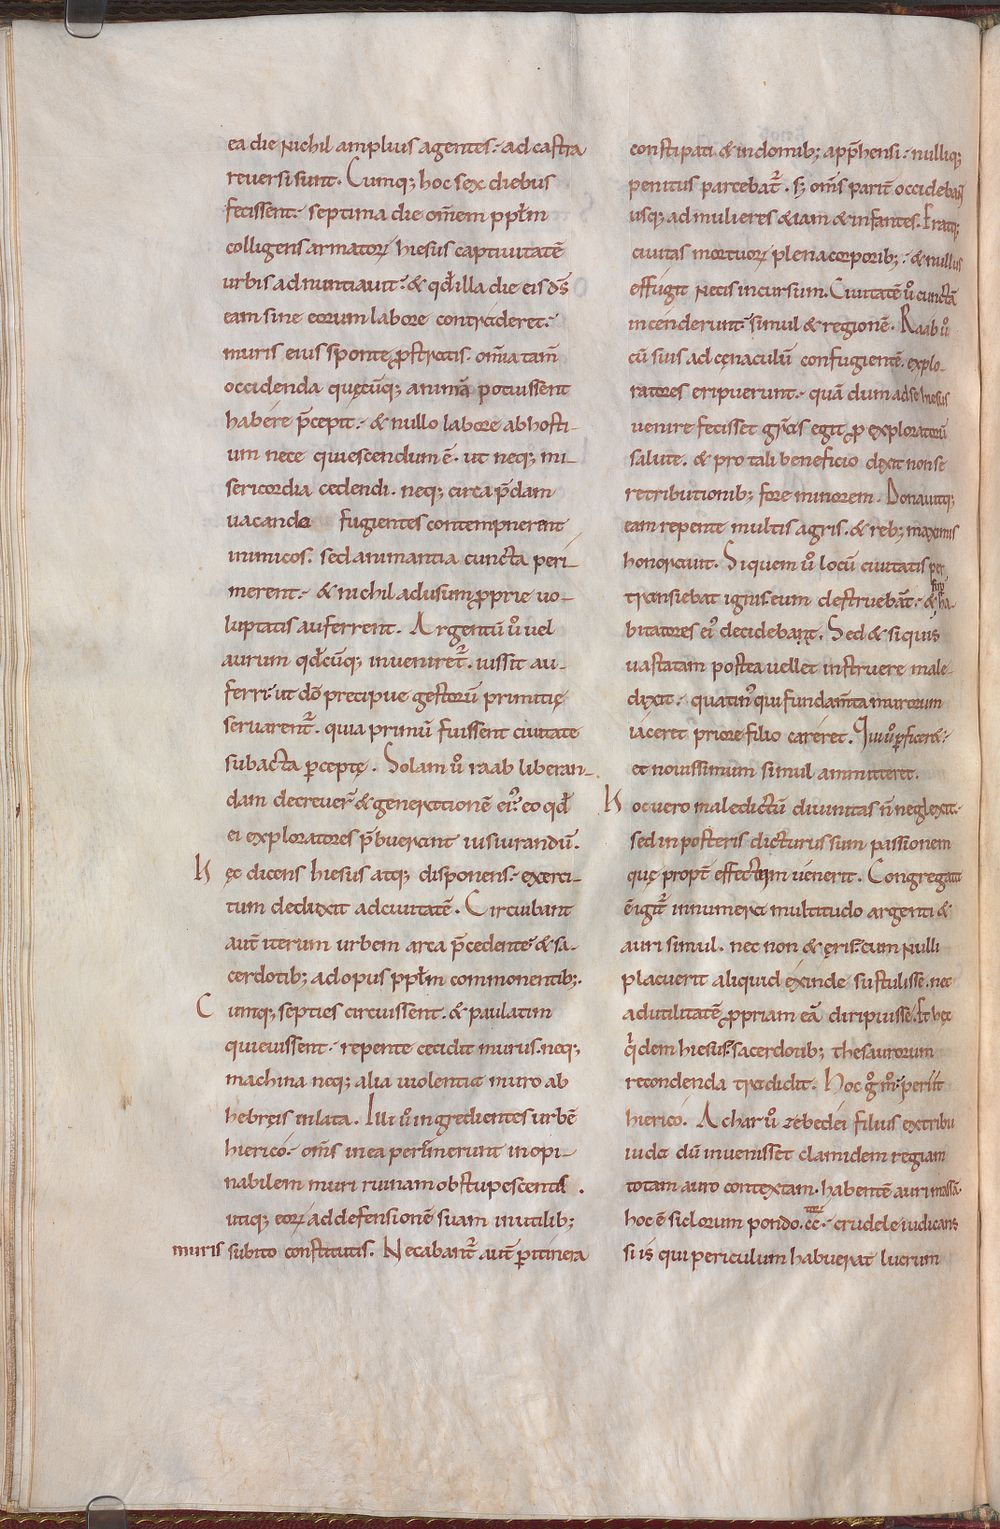 ea die Nichil amplius agentes · ad castra
reuersi sunt . Cumq; hoc sex diebus
fecissent · septima die om̄em ppl̄m
colligens armatoꝝ hiesus captiuitatē
urbis adnuntiauit · & qđ illa die eis d̄s
eam sine eorum labore contraderet ·
muris eius sponte ꝓstratis . om̄ia tam̄
occidenda quęcūq; animā potuissent
habere p̄cepit · & nullo labore ab hosti-
um nece quiescendum ē . ut neq; mi-
sericordia cedendi . neq; circa p̄dam
uacando fugientes contempnerent
inimicos . sed animantia cuncta peri-
merent · & nichil ad usum ꝓprie uo-
luptatis auferrent . Argentū ů uel
aurum qđcūq; inueniret᷑ . iussit au-
ferri · ut dō precipue gestorū primitię
seruarent᷑ . quia primū fuissent ciuitate
subacta ꝑceptę . Solam ů raab liberan-
dam decreuer̄ & generationē eiꝰ · eo qđ
ei exploratores p̄buerant iusiurandū .
Hęc dicens hiesus atq; disponens · exerci-
tum deduxit ad ciuitatē . Circuibant
aut̄ iterum urbem arca p̄cedente & sa-
cerdotib; ad opus ppl̄m commonentib; .
Cumq; septies circuissent . & paulatim
quieuissent · repente cecidit murus . neq;
machina neq; alia uiolentia muro ab
hebręis inlata . Illi ů ingredientes urbē
hierico · om̄s in ea perimerunt inopi-
nabilem muri ruinam obstupescentes .
utiq; eoꝝ ad defensionē suam inutilib;
muris subito constitutis . Necabant᷑ aut̄ ꝑ itinera
constipati & in domib; app̄hensi · nulliq;
penitus parcebat᷑ . sꝫ om̄s parit̄ occidebant᷑
usq; ad mulieres & iam & infantes . Eratq;
ciuitas mortuoꝝ plena corporib; · & nullus
effugit Necis incursum . Ciuitatē ů cunctā
incenderunt simul & regionē . Raab ů
cū suis ad cęnaculū confugientē . explo-
ratores eripuerunt · quā dum ad se hiesus
uenire fecisset gr̄as egit ꝓ exploratorū
salute . & pro tali beneficio dixit non se
retributionib; fore minorem . Donauitq;
eam repente multis agris . & reb; maximis
honorauit . Si quem ů locū ciuitatis per
transiebat ignis · eum destruebāt · & ha-
bitatores eiꝰ decidebant . Sed & si quis
uastatam postea uellet instruere male-
dixit · quatinꝰ qui fundam̄ta murorum
iaceret priore filio careret . Qui ů ꝑficeret ·
et nouissimum simul ammitteret .
Hoc uero maledictū diuinitas n̄ neglexit ·
sed in posteris dicturus sum passionem
quę propt̄ effectum uenerit . Congregata
ē igit᷑ innumera multitudo argenti &
auri simul . nec non & ęris · cum Nulli
placuerit aliquid exinde sustulisse . nec
ad utilitatē ꝓpriam eā diripuisse . Et hęc
qͥdem hiesus · sacerdotib; thesaurorum
recondenda tradidit . Hoc gͦ mͦ · periit
hierico . Achar ů zebedei filius ex tribu
iuda dū inuenisset clamidem regiam
totam auro contextam . habentē auri massā ·
hoc ē siclorum pondo . cc̄ · crudele iudicans
si is qui periculum habuerat lucrum